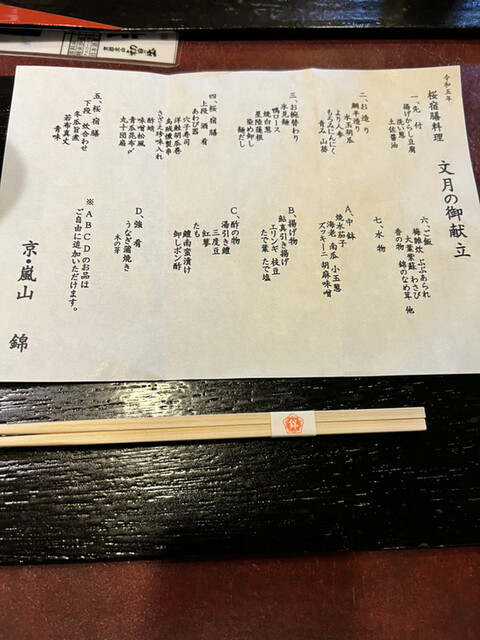 令和五年
桜宿膳料理 文月の御献立
一、先付
揚げからし豆腐
洗い葱
土佐醤油
二、お造り
鯛平造り
水玉胡瓜
より人参
もろみにんにく
青み 山葵
三、お椀替わり
氷見麺
鴨ロース
焼白葱
星陸蓮根
染め卸し
麺だし
四、桜宿膳
上段 酒肴
あわび器
穴子寿司
洋鮭胡瓜巻
烏城燻製串
さざえ珍味入れ
酢蛸
味噌松風
青瓜昆布〆
丸十団扇
五、桜宿膳
下段 炊合わせ
冬瓜旨煮
若布真丈
青味
六、ご飯
梅雑炊 ぶぶあられ
大葉紫蘇 わさび
香の物 錦のなめ茸 他
七、水物
A、中鉢
焼水茄子
海老 南瓜 小玉葱
ズッキーニ 胡麻味噌
B、揚げ物
鮎真引き揚げ
エリンギ 枝豆
たで葉 たで塩
C、酢の物
湯引き鱧
三度豆
紅蓼
鱧南蛮漬け
卸しポン酢
D、強肴
うなぎ蒲焼き
木の芽
※ABCDのお品は
ご自由に追加いただけます。
京・嵐山 錦